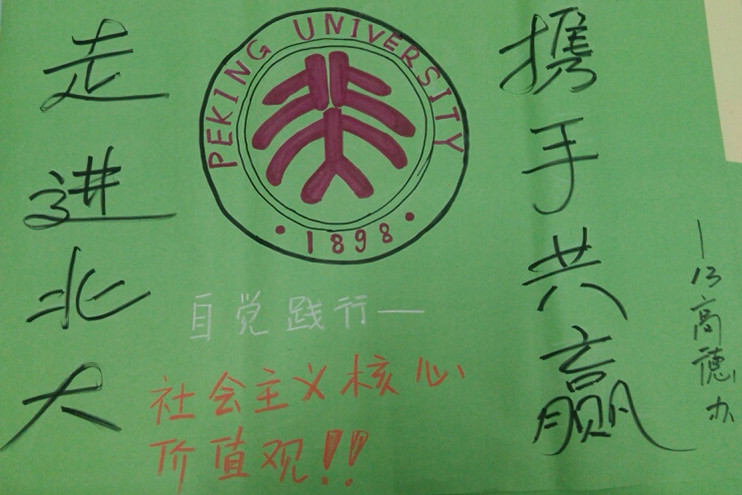 走进北大
PEKING UNIVERSITY
·1898·
携手共赢
自觉践行——
社会主义核心
价值观!!
—13高德办